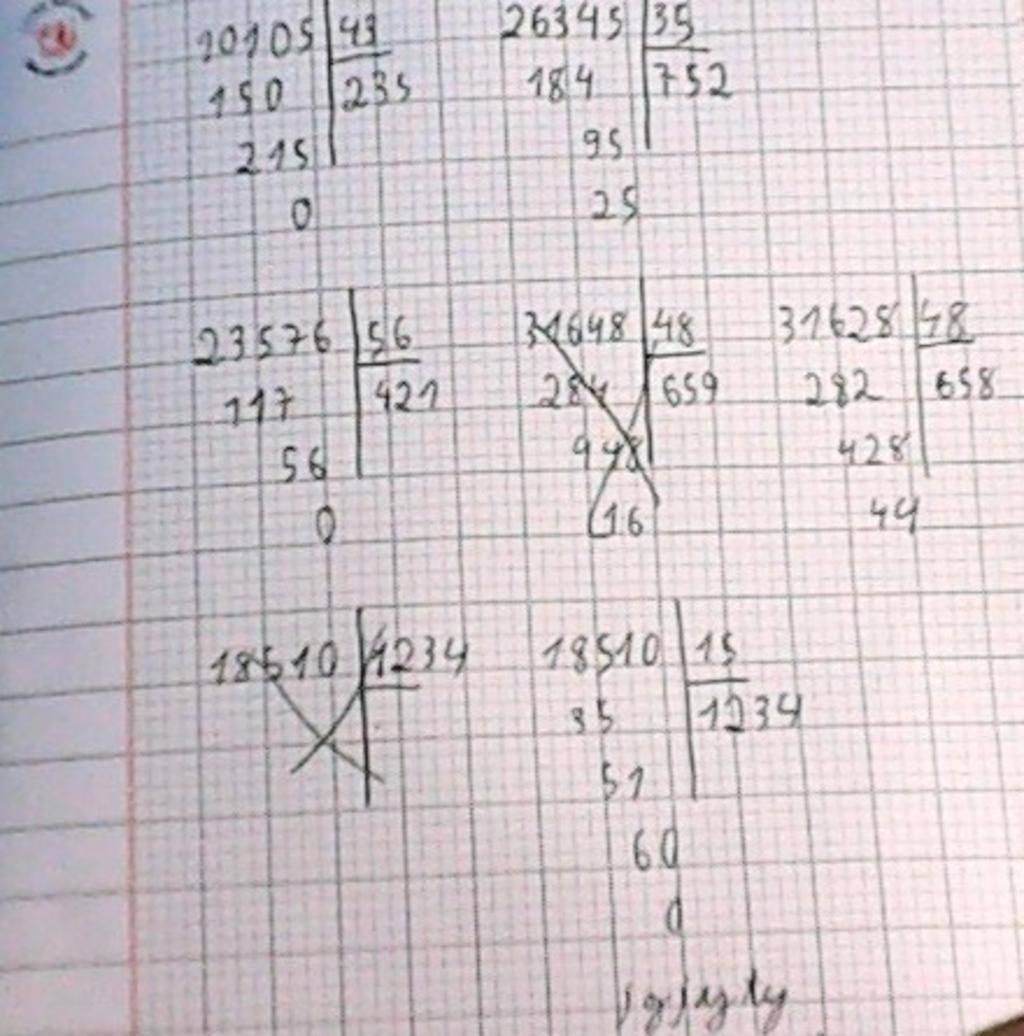 10105 43 26345 35
150 235 184 752
215 95
0 25
23576 56 31648 48 31628 48
117 421 284 659 282 658
56 948 428
0 16 44
18510 1234 18510 15
35 1234
51
60
0